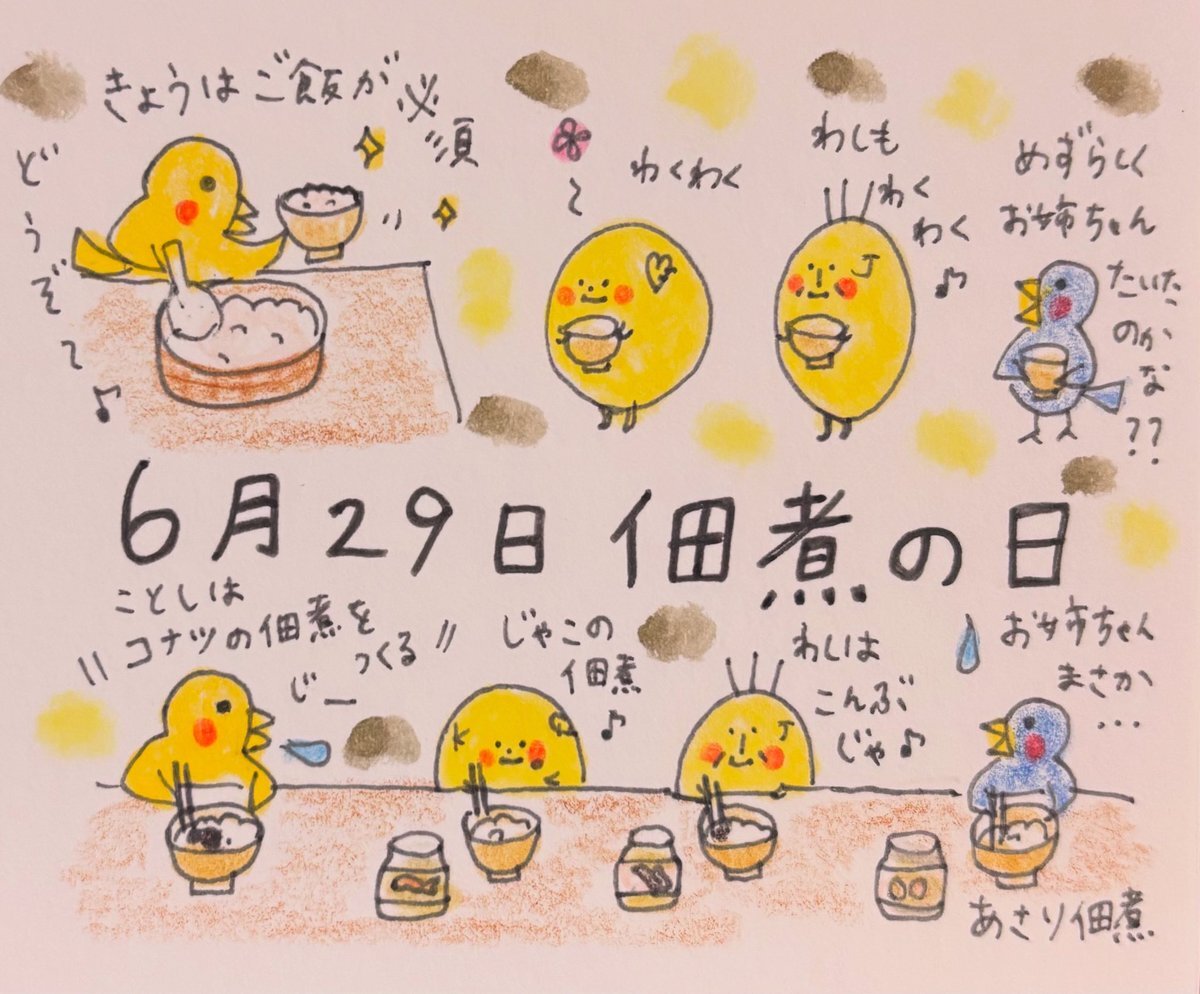 きょうはご飯が必須
どうぞ〜♪
わくわく
わしも
わく
わく♪
めずらしく
お姉ちゃん
たいた
のかな
??
6月29日 佃煮の日
ことしは
コナツの佃煮を
つくる
じー
じゃこの
佃煮♪
わしは
こんぶ
じゃ♪
お姉ちゃん
まさか
...
K
J
J
あさり佃煮